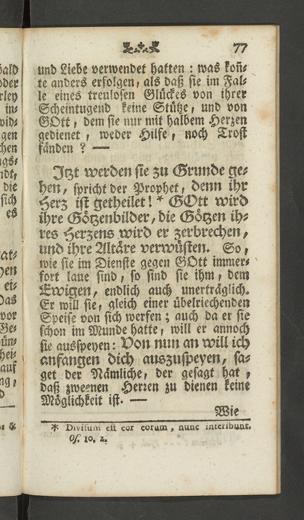 77
und Liebe verwendet hatten : was koñ-
te anders erfolgen, als daß sie im Fal-
le eines treulosen Glückes von ihrer
Scheintugend keine Stütze, und von
GOtt, dem sie nur mit halbem Herzen
gedienet, weder Hilfe, noch Trost
fänden ? —
Jtzt werden sie zu Grunde ge-
hen, spricht der Prophet, denn ihr
Herz ist getheilet! * GOtt wird
ihre Götzenbilder, die Götzen ih-
res Herzens wird er zerbrechen,
und ihre Altäre verwüsten. So,
wie sie im Dienste gegen GOtt immer-
fort laue sind, so sind sie ihm, dem
Ewigen, endlich auch unerträglich.
Er will sie, gleich einer übelriechenden
Speise von sich werfen; auch da er sie
schon im Munde hatte, will er annoch
sie ausspeyen: Von nun an will ich
anfangen dich auszuspeyen, sa-
get der Nämliche, der gesagt hat,
daß zweenen Herren zu dienen keine
Möglichkeit ist. —
Wie
* Divisum est cor eorum, nunc interibunt.
Os. 10. 2.